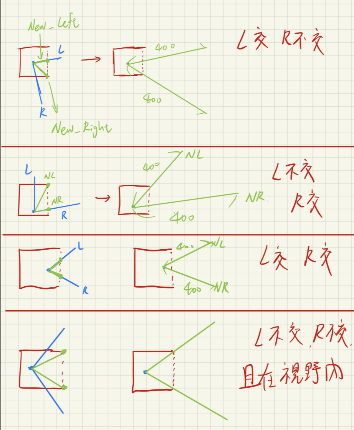 New_Left
L
R
New_Right
400
400
L交 R不交
L
NL
NR
R
400
NL
NR
400
L不交
R交
L
R
400
NL
400
NR
L交 R交
L不交,R不交
且在視野內